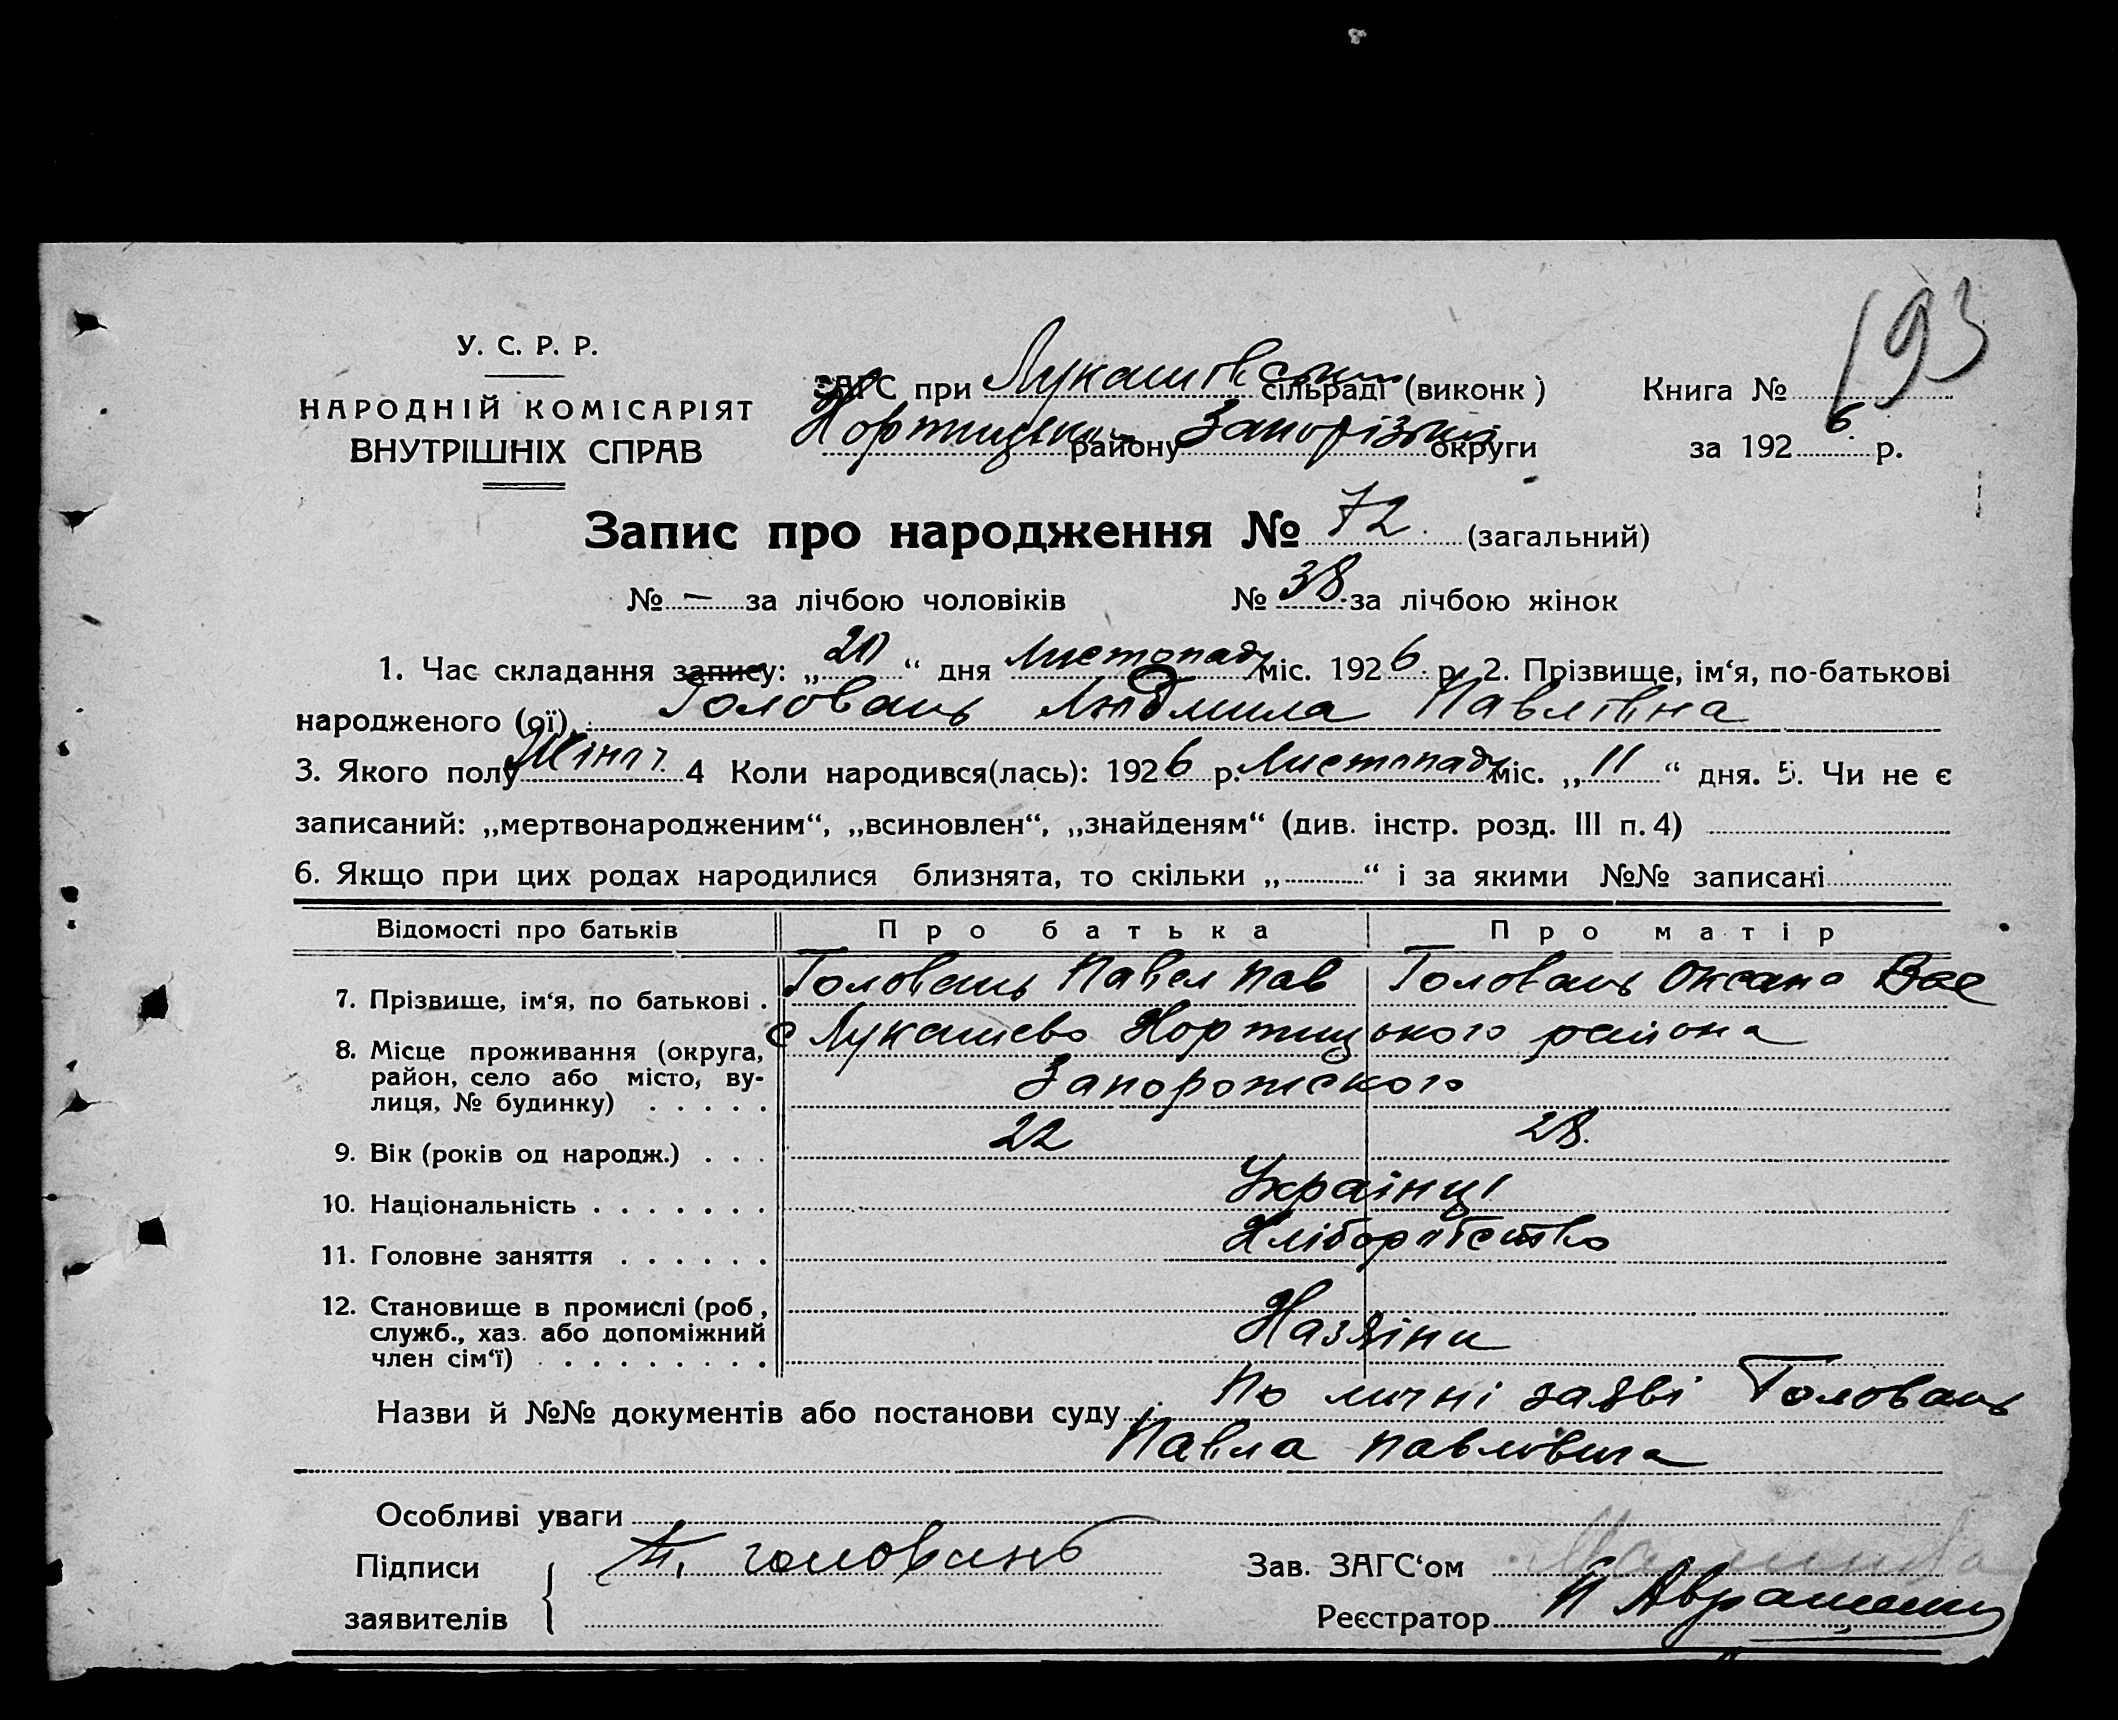 193
У. С. Р. Р.
НАРОДНІЙ КОМІСАРІЯТ
ВНУТРІШНІХ СПРАВ
ЗАГС при Лукашовськи сільраді (виконк)
Хортицьки району Запорізький округи
Книга №
за 1926 р.
Запис про народження № 72 (загальний)
№ – за лічбою чоловіків № 38 за лічбою жінок
1. Час складання запису: „20“ дня Листопаду міс. 1926 р. 2. Прізвище, ім‘я, по-батькові
народженого (ої): Головань Людмила Павлівна
3. Якого полу Жіноч. 4 Коли народився(лась): 1926 р. Листопаду міс. „11“ дня. 5. Чи не є
записаний: „мертвонародженим“, „всиновлен“, „знайденям“ (див. інстр. розд. III п. 4)
6. Якщо при цих родах народилися близнята, то скільки „ “ і за якими №№ записані
Відомості про батьків Про батька Про матір
7. Прізвище, ім‘я, по батькові . Головань Павел Пав Головань Оксана Вас
8. Місце проживання (округа, район, село або місто, ву-лиця, № будинку) . . . . . с Лукашево Хортицького района
Запорожского
9. Вік (років од народж.) . . . 22 28.
10. Національність . . . . . . . Українці
11. Головне заняття . . . . . . Хліборобство
12. Становище в промислі (роб, служб., хаз. або допоміжний член сім‘ї) . . . . . . . . . Хазяіни
Назви й №№ документів або постанови суду По личні заяві Головань
Павла Павловича
Особливі уваги
Підписи П. головань Зав. ЗАГС‘ом
заявителів Реєстратор